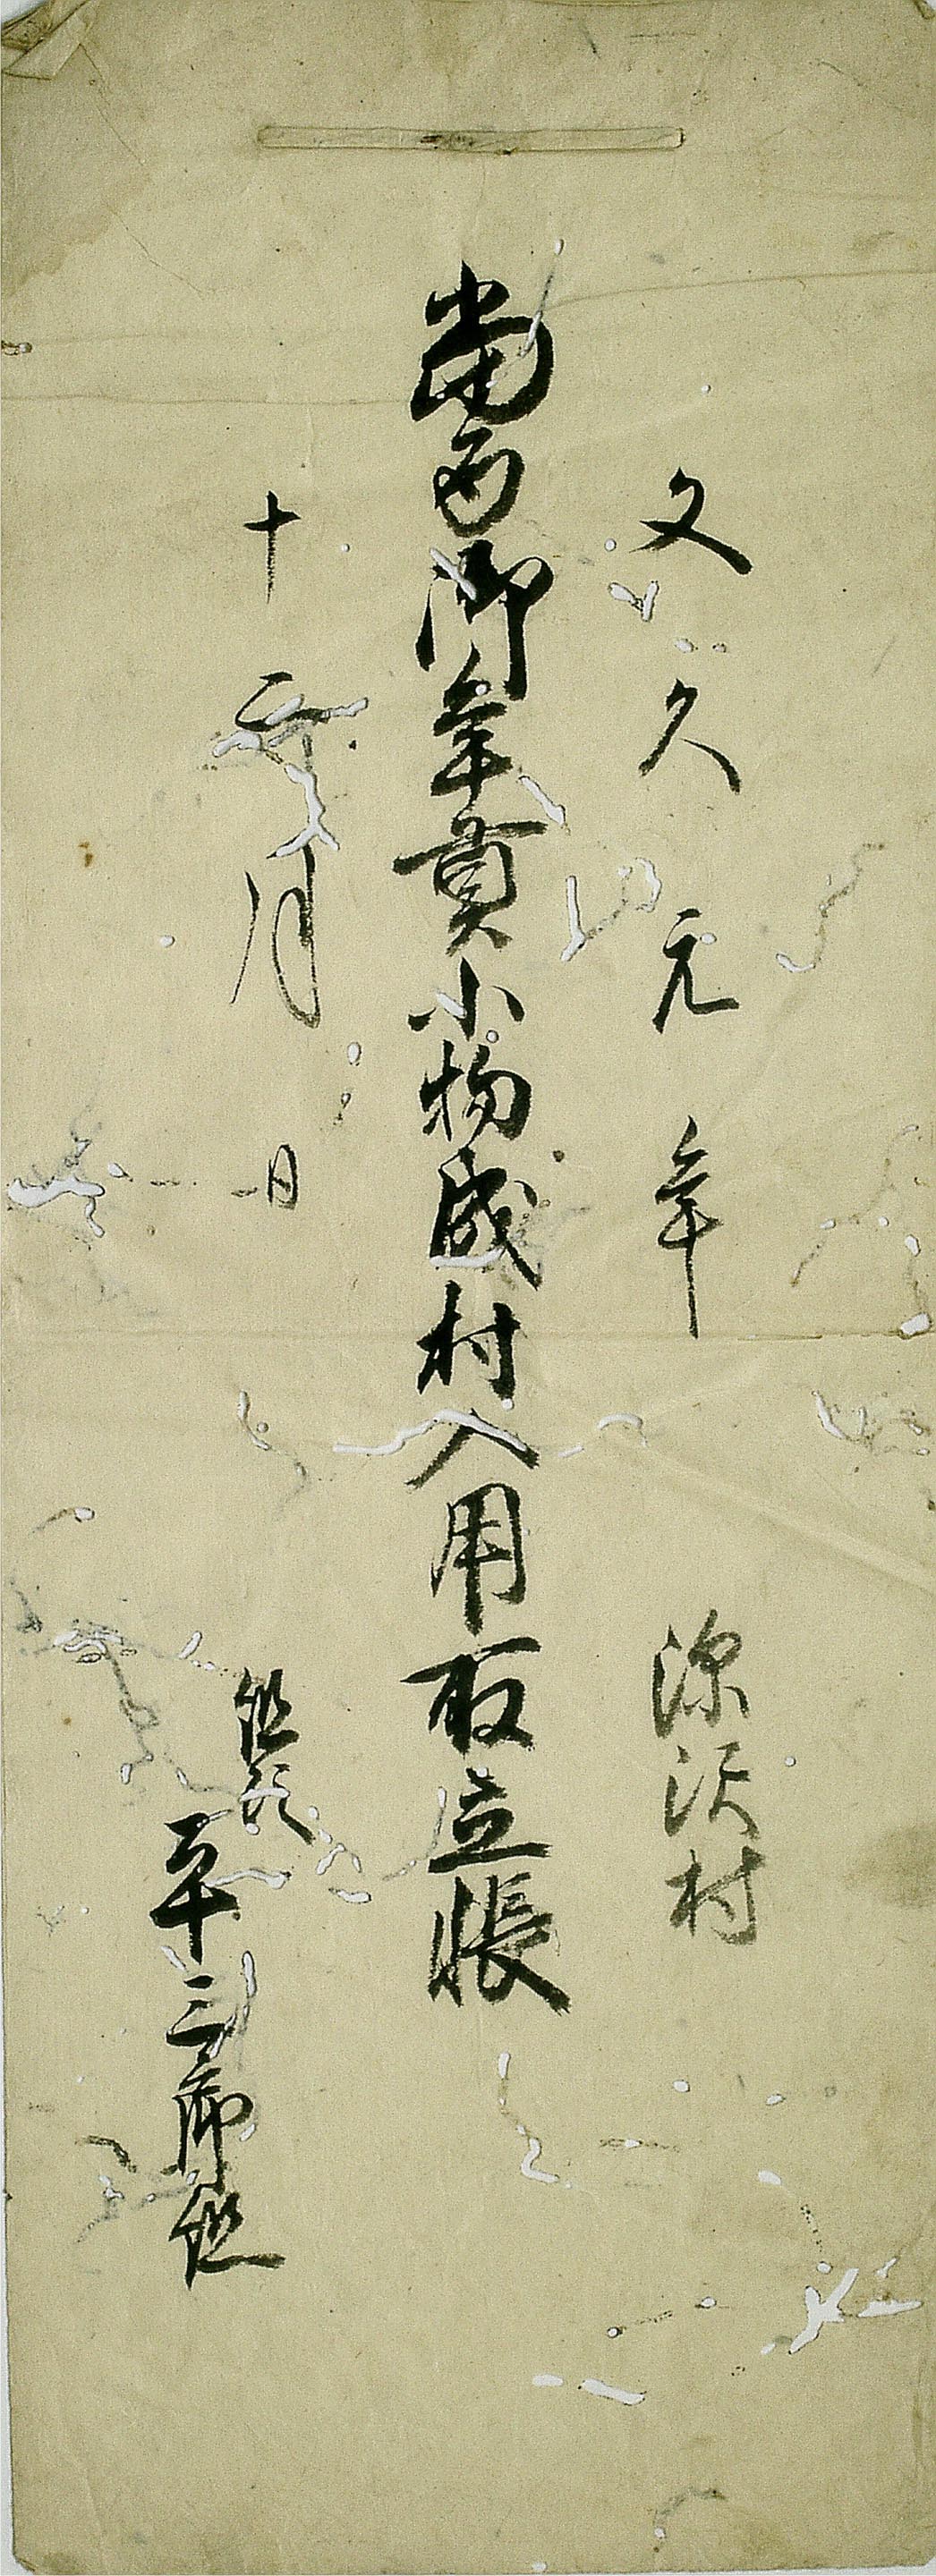 文久元年
深沢村
當酉御年貢小物成村入用取立帳
十二月 日
組頭
平三郎組